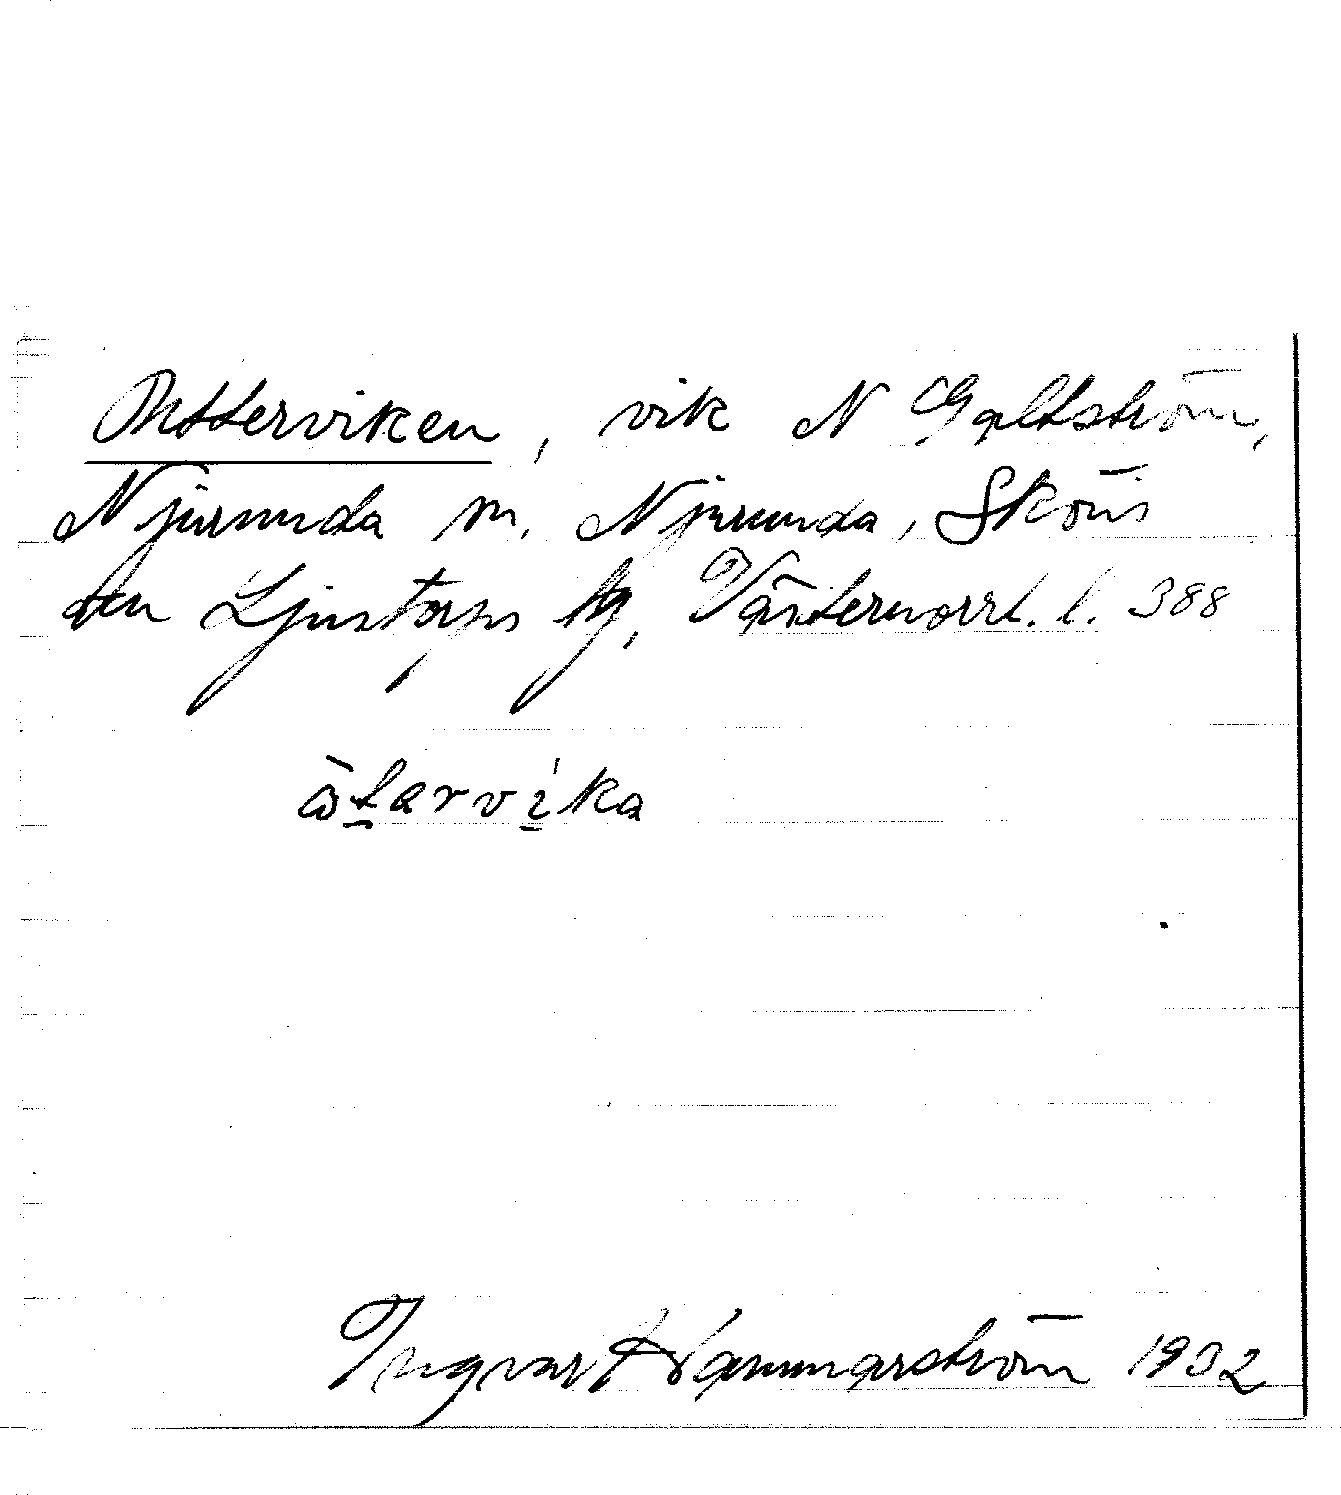 Otterviken, vik N Galtström,
Njurunda sn, Njurunda, Sköns
Ljustorps tg, Västernorrl. l. 388
ὼt̲arví̲ka
Ingvar Hammarström 1932